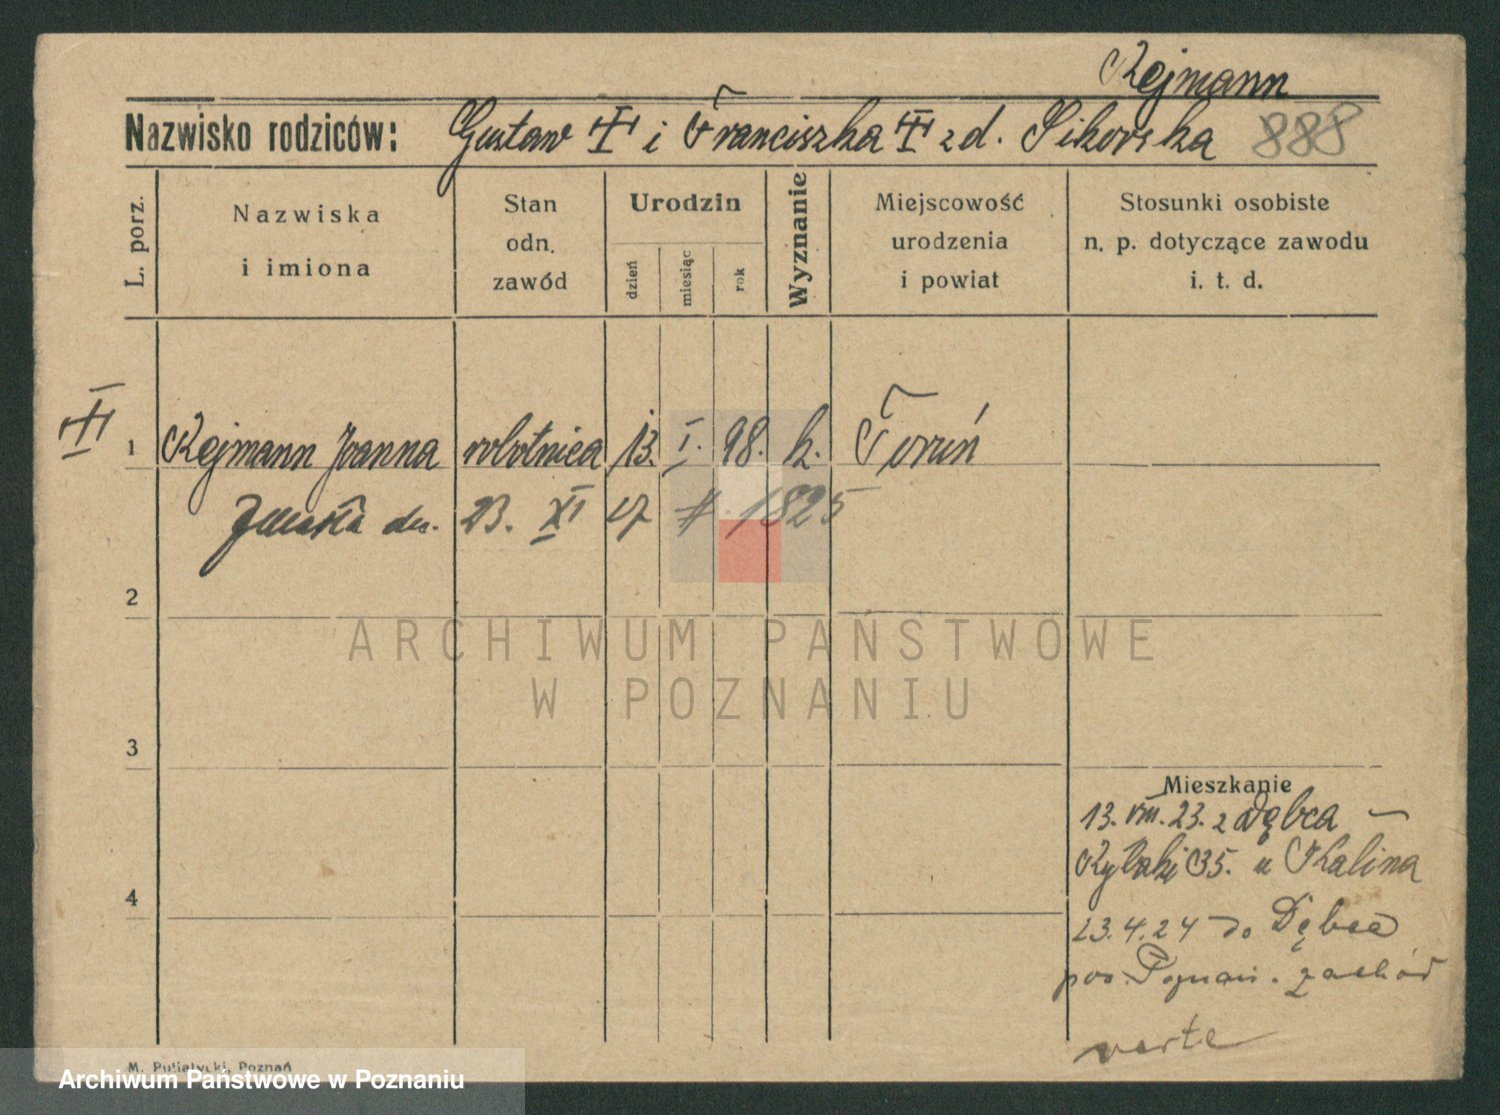 Rejmann
Nazwisko rodziców: Gustaw i Franciszka z d. Sikorska 888
L. porz.
Nazwiska
i imiona
Stan
odn.
zawód
Urodzin
dzień
miesiąc
rok
Wyznanie
Miejscowość
urodzenia
i powiat
Stosunki osobiste
n. p. dotyczące zawodu
i. t. d.
1 Rejmann Joanna robotnica 13. I. 98. k. Toruń
Zmarła dn. 23. XI 1825
2
ARCHIWUM PAŃSTWOWE
W POZNANIU
3
Mieszkanie
13. VIII. 23. z Dębca
Rybaki 35. u Kalina
4
23.4.24 do Dębca
pow. Poznań. zachód
verte
M. Putiatycki, Poznań
Archiwum Państwowe w Poznaniu